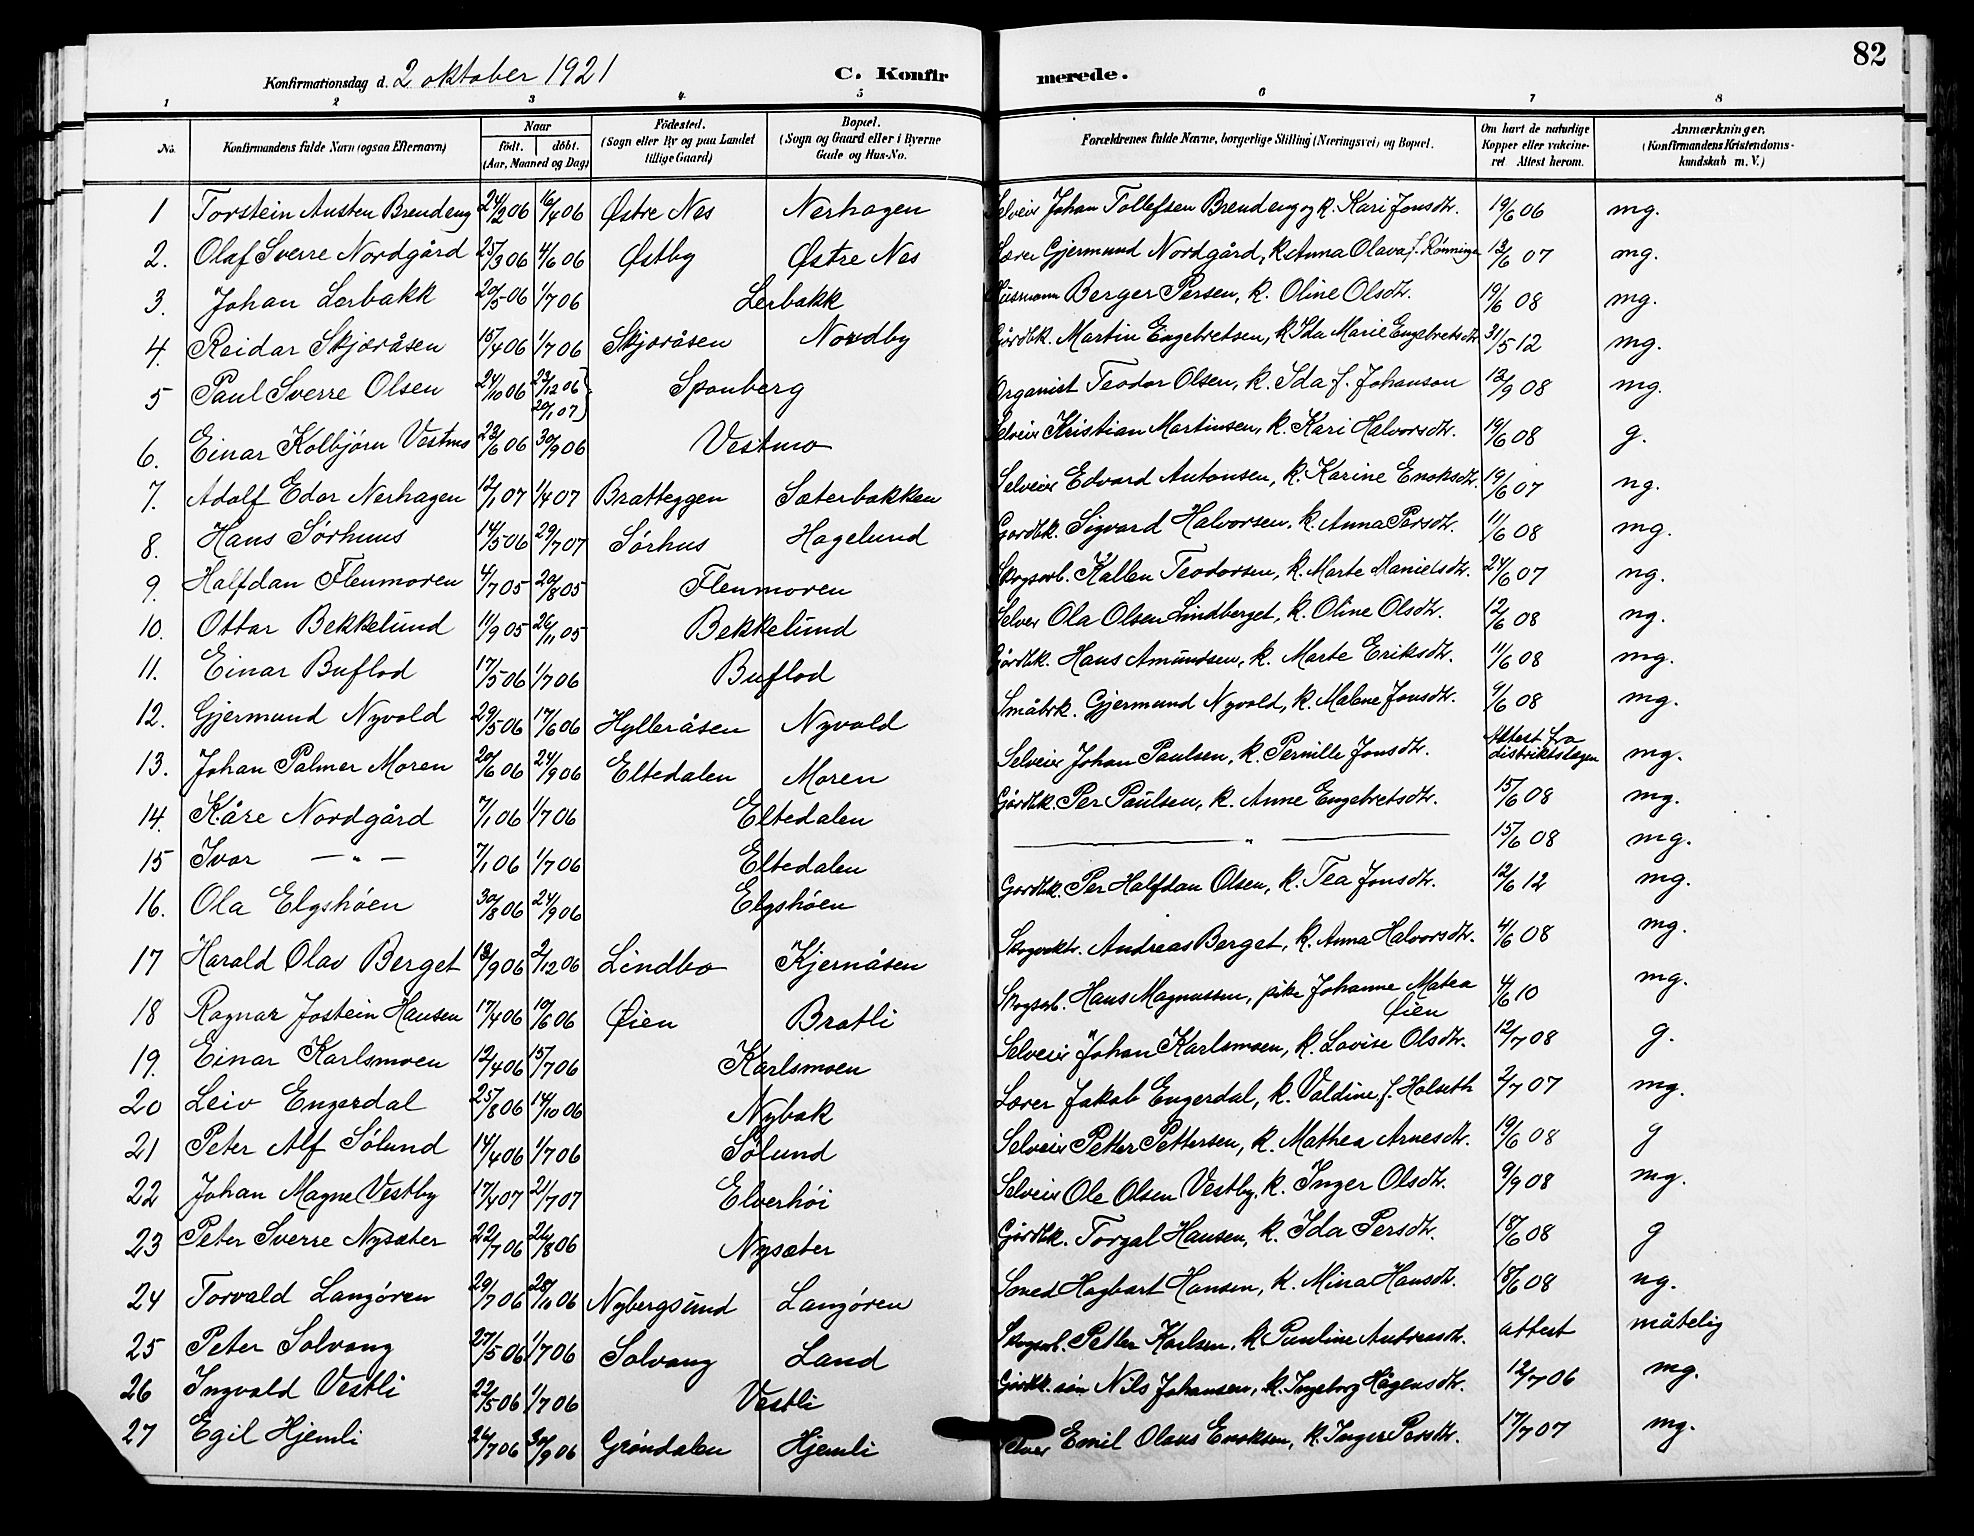 82
Konfirmationsdag d. 2 oktober 1921 C. Konfirmerede.
1 2 3 4 5 6 7 8
No. Konfirmandens fulde Navn (ogsaa Efternavn) Naar født. døbt. (Aar, Maaned og Dag) Fødested. (Sogn eller By og paa Landet tillige Gaard) Bopæl. (Sogn og Gaard eller i Byerne Gade og Hus-No. Forældrenes fulde Navne, borgerlige Stilling (Næringsvei) og Bopæl. Om havt de naturlige Kopper eller vakcineret Attest herom. Anmærkninger. (Konfirmandens Kristendomskundskab m. V.)
1 Torstein Austen Brendeng 24/2 06 16/4 06 Østre Nes Nerhagen Selveier Johan Tollefsen Brendeng og k. Kari Jonsdtr. 19/6 06 mg.
2. Olaf Sverre Nordgård 25/3 06 4/6 06 Østby Østre Nes Lærer Gjermund Nordgård, k. Anna Olava f. Rønningen 13/6 07 mg.
3. Johan Lerbakk 20/5 06 1/7 06 Lerbakk Husmann Berger Persen, k. Oline Olsdtr. 19/6 08 mg.
4. Reidar Skjæråsen 15/4 06 1/7 06 Skjæråsen Nordby Gårdbk. Martin Engebretsen, k. Ida Marie Engebretsdtr 31/5 12 mg.
5 Paul Sverre Olsen 24/10 06 23/12 06 20/1 07) Sponberg Organist Teodor Olsen, k. Ida f. Johanson 13/9 08 mg.
6. Einar Kolbjørn Vestmo 23/6 06 30/9 06 Vestmo Selveier Kristian Martinsen, k. Kari Halvorsdtr. 19/6 08 g.
7. Adolf Edor Nerhagen 12/1 07 1/4 07 Bratteggen Sæterbakken Selveier Edvard Antonsen, k. Karine Enoksdtr. 19/6 07 ng.
8. Hans Sørhuus 14/5 06 29/7 07 Sørhus Hagelund Gardbk. Sigvard Halvorsen, k. Anna Persdtr. 11/6 08 mg.
9. Halfdan Flenmoren 4/7 05 20/8 05 Flenmoren Skogsarb. Kallen Teodorsen, k. Marte Danielsdtr. 24/6 07 ng.
10. Ottar Bekkelund 11/9 05 26/11 05 Bekkelund Selveier Ola Olsen Lindberget, k. Oline Olsdtr. 12/6 08 ng.
11. Einar Buflod 17/5 06 1/7 06 Buflod Gårdbk. Hans Amundsen, k. Marte Eriksdtr. 11/6 08 mg.
12. Gjermund Nyvold 29/5 06 17/6 06 Hylleråsen Nyvold Småbrk. Gjermund Nyvold, k. Malene Jonsdtr. 9/6 08 mg.
13. Johan Palmer Moren 20/6 06 24/9 06 Eltedalen Moren Selveier Johan Paulsen, k. Pernille Jonsdtr. Attest fra distriktslægen mg.
14. Kåre Nordgård 7/1 06 1/7 06 Eltedalen Gårdbk. Per Paulsen, k. Anne Engebretsdtr. 15/6 08 mg.
15 Ivar — " — 7/1 06 1/7 06 Eltedalen — " — 15/6 08 mg.
16. Ola Elgshøen 30/8 06 24/9 06 Elgshøen Gardbk. Per Halfdan Olsen, k. Tea Jonsdtr. 12/6 12 mg.
17 Harald Olav Berget 13/9 06 2/12 06 Lindbo Kjernåsen Skogvokter. Andreas Berget, k. Anna Halvorsdtr. 4/6 08 mg.
18 Ragnar Jostein Hansen 17/4 06 10/6 06 Øien Bratli Skogsarb. Hans Magnussen, pike Johanne Matea Øien 4/6 10 mg.
19. Einar Karlsmoen 12/4 06 15/7 06 Karlsmoen Selveier Johan Karlsmoen, k. Lovise Olsdtr. 12/7 08 g.
20 Leiv Engerdal 25/8 06 14/10 06 Nybak Lærer Jakob Engerdal, k. Valdine, f. Holseth 2/7 07 mg.
21 Peter Alf Sølund 14/4 06 1/7 06 Sølund Selveier Petter Pettersen, k. Mathea Arnesdtr. 19/6 08 g
22 Johan Magne Vestby 17/4 07 21/7 07 Elverhøi Selveier Ole Olsen Vestby, k. Inger Olsdtr. 9/9 08 mg.
23 Peter Sverre Nysæter 22/7 06 26/8 06 Nysæter Gårdbk. Torgal Hansen, k. Ida Persdtr. 18/6 08 g
24 Torvald Langøren 29/7 06 28/10 06 Nybergsund Langøren Smed Hagbart Hansen, k. Mina Hansdtr. 18/6 08 ng.
25 Peter Solvang 27/5 06 1/7 06 Solvang Land Skogsarb. Petter Karlsen, k. Pauline Andreasdtr. attest måtelig
26 Ingvald Vestli 22/5 06 1/7 06 Vestli Gårdbk. søn Nils Johansen, k. Ingeborg Hågensdtr. 12/7 06 mg.
27 Egil Hjemli 26/7 06 30/9 06 Grøndalen Hjemli Selveier Emil Olaus Enoksen, k. Inger Persdtr. 17/7 07 mg.